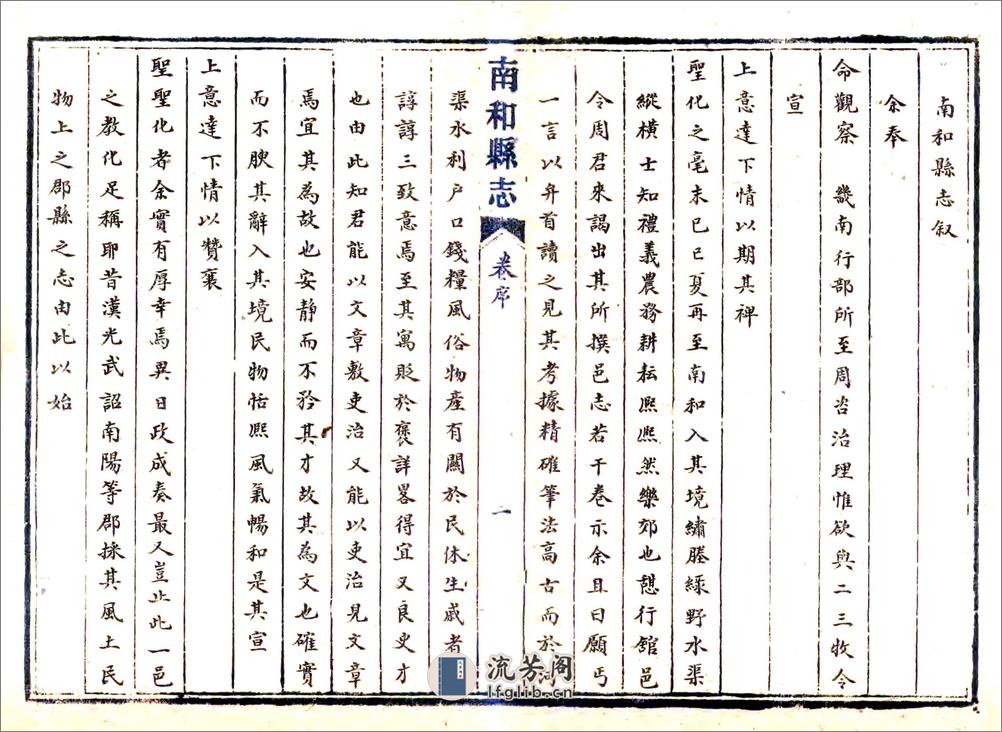 南和縣志叙
余奉
命觀察 畿南行部所至周咨治理惟欲與二三牧令
宣
上意達下情以期其裨
聖化之毫末已巳夏再至南和入其境繡塍緑野水渠
縱横士知禮義農務耕耘熈熈然樂郊也憇行舘邑
令周君来謁出其所撰邑志若干卷示余且曰願丐
一言以弁首讀之見其考據精確筆法高古而於
南和縣志
卷序
一
渠水利户口錢糧風俗物産有關於民休生戚者
諄諄三致意焉至其寓貶於褒詳畧得宜又良史才
也由此知君能以文章敷吏治又能以吏治見文章
焉宜其為故也安静而不矜其才故其為文也確實
而不腴其辭入其境民物恬熈風氣暢和是其宣
上意達下情以贊襄
聖聖化者余實有厚幸焉異日政成奏最又豈止此一邑
之教化足稱耶昔漢光武詔南陽等郡採其風土民
物上之郡縣之志由此以始
流芳阁
lfglib.cn